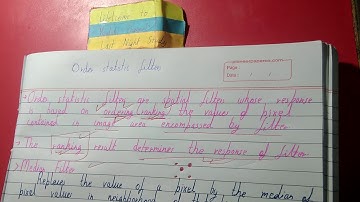 Order statistic filters
Page:
Date: / /
→ Order statistic filters are spatial filters whose response
is based on ordering (ranking) the values of pixel
contained in image area encompassed by filter
→ The ranking result determines the response of filter
→ Median Filter
Replaces the value of a pixel by the median of
pixel value in neighborhood of